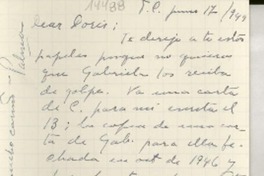 T.P. junio 17/949
Dear Doris:
Te dirijo a ti estos
papeles porque no quiero
que Gabriela los reciba
de golpe. Va una carta
de C. para mí escrita el
13; la copia de una car-
ta de Gab. para ella fe-
chada en oct de 1946 y
mucho cariño = Palma